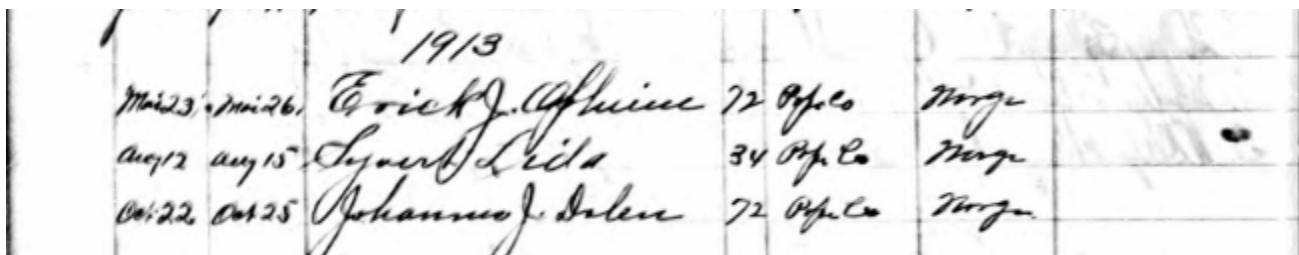 1913
Mai 23, Mai 26, Erick J. 72 Pope Co Norge
Aug 12 Aug 15 Syvert Lida 34 Pope Co Norge
Oct 22, Oct 25 Johannes J. Dalen 72 Pope Co Norge.